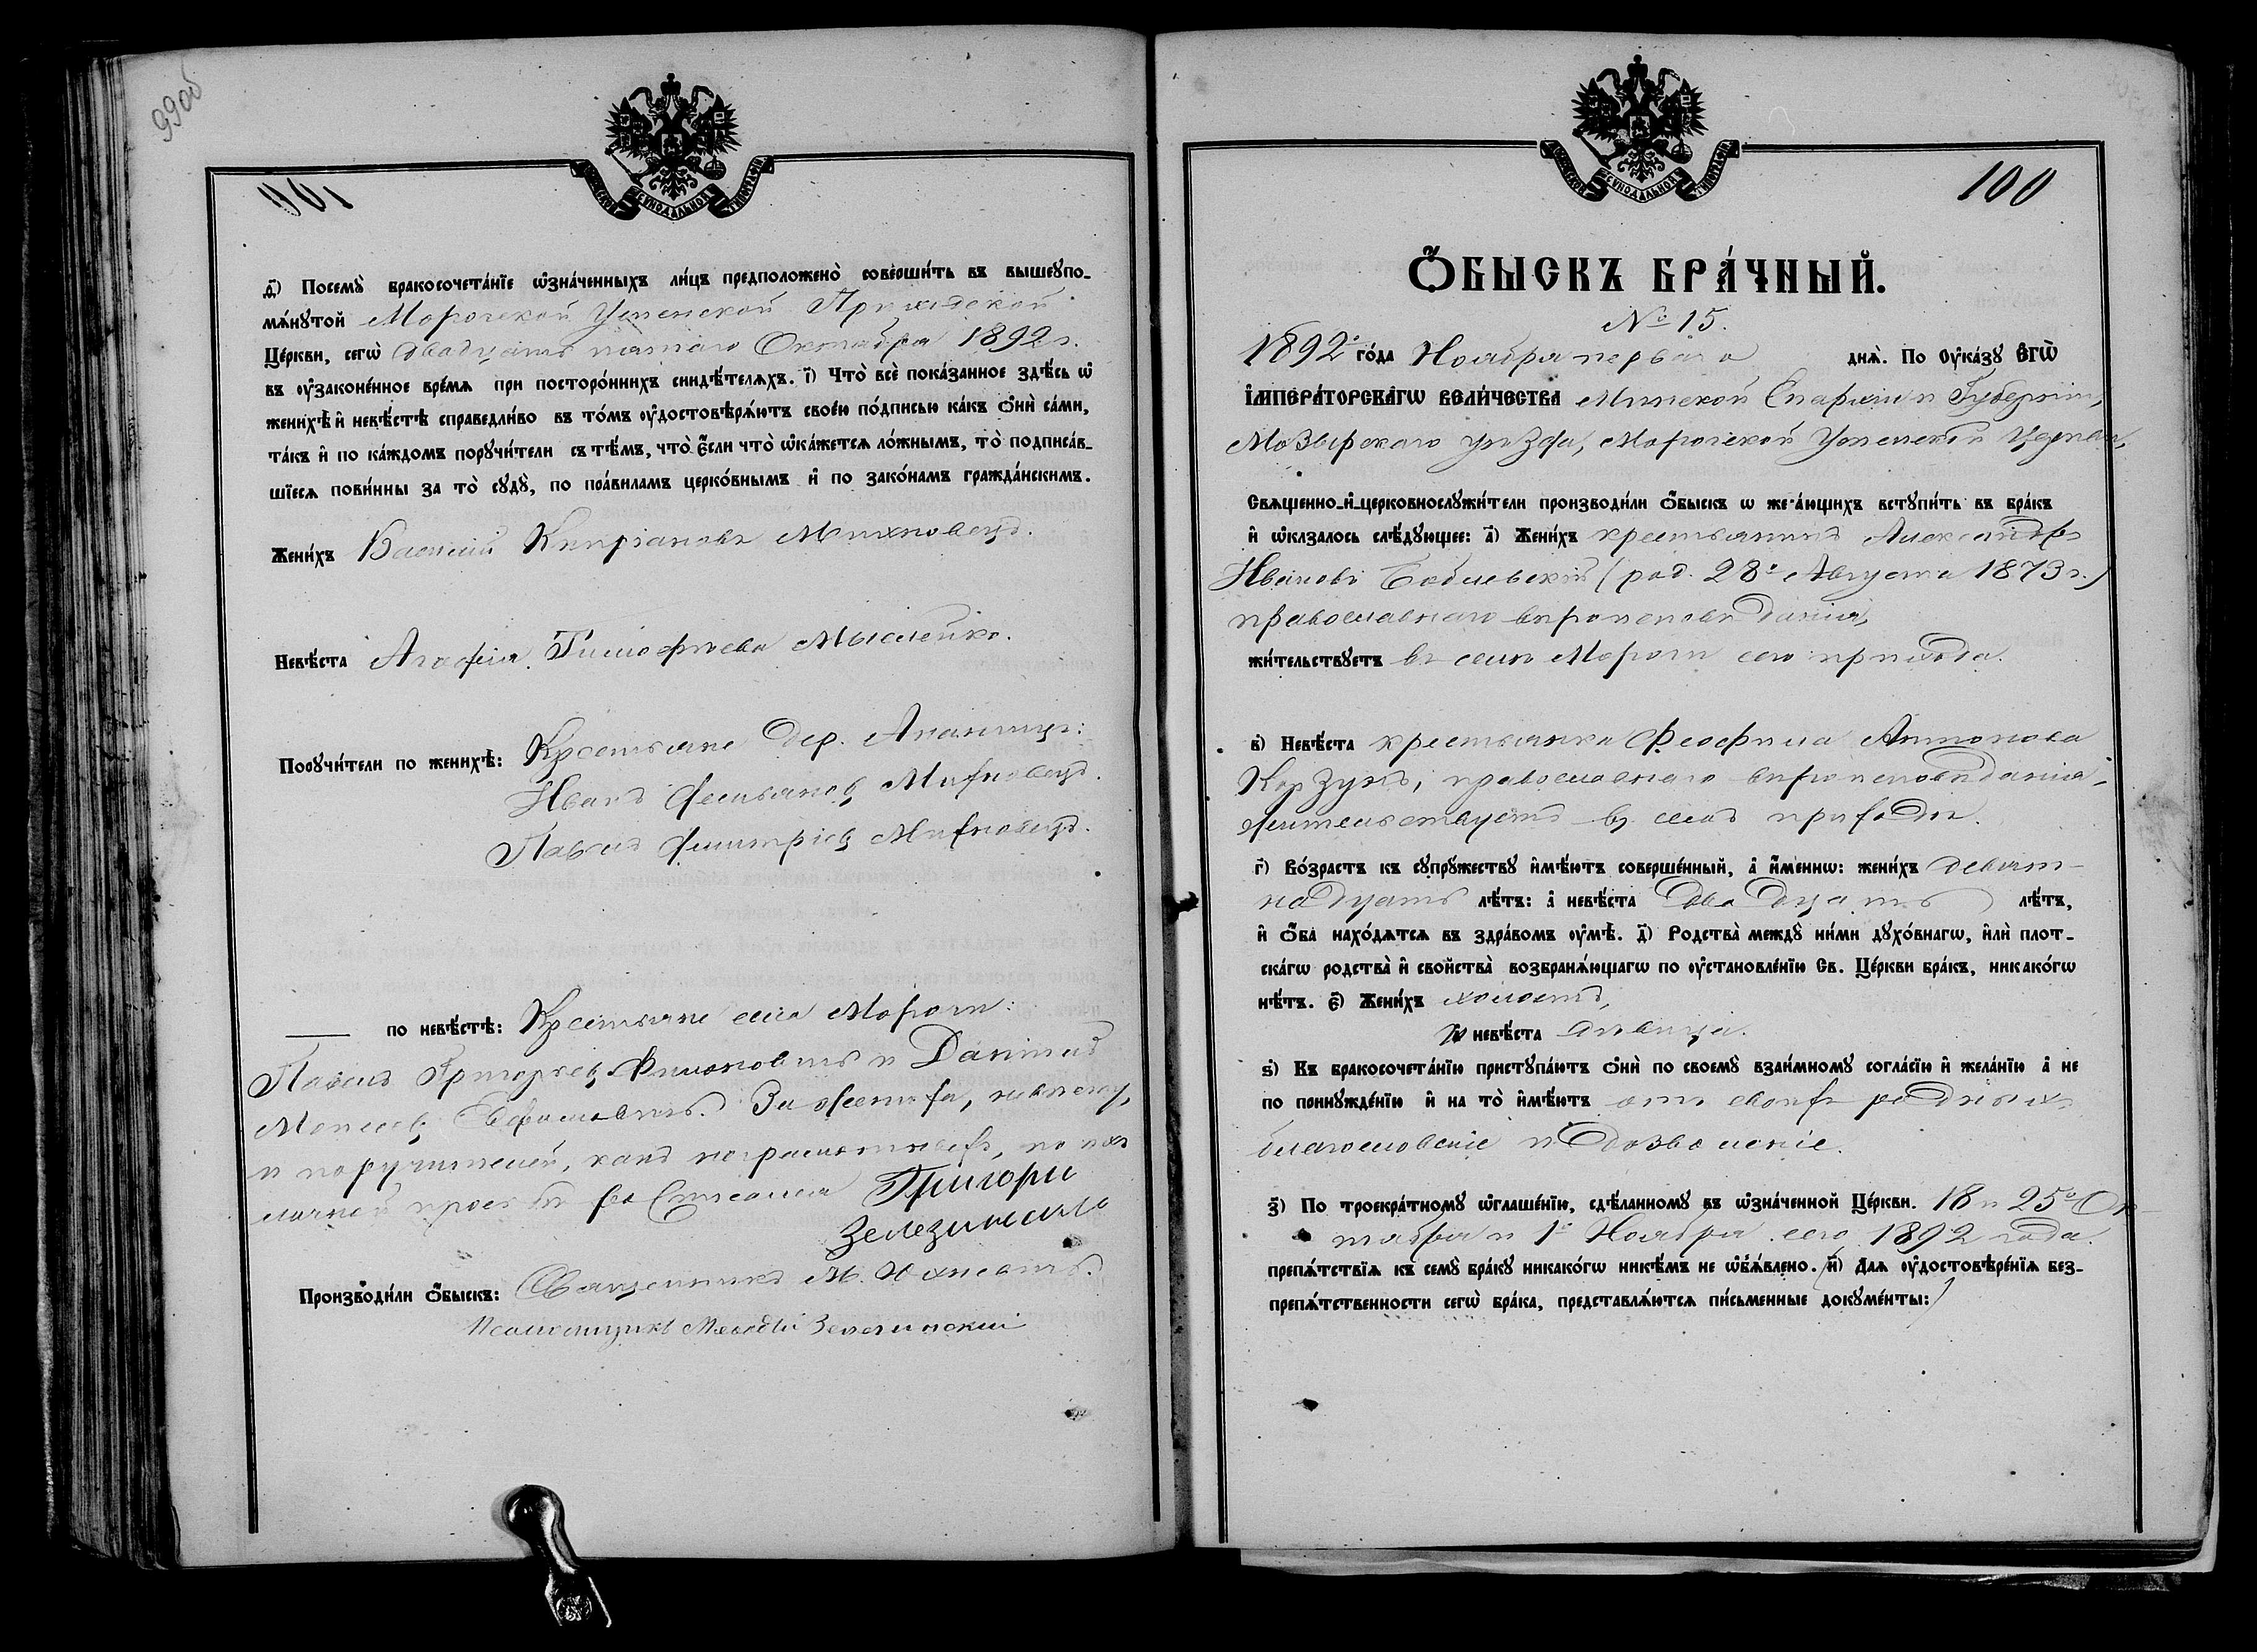 99об
100
д҃) Посемꙋ̀ бракосочета́нїе ѡ҆зна́ченныхъ ли́цъ предположено̀ соверши́ть въ вышеꙋпо-
мѧ́нꙋтой Морочской Успенской Приходской
Це́ркви, сегѡ̀ двадцать пятаго Октября 1892 г.
въ ᲂу҆законе́нное вре́мѧ при посторо́ннихъ свидѣ́телѧхъ. і҃) Что̀ всѐ пока́занное здѣ́сь ѡ҆
женихѣ̀ и҆ невѣ́стѣ справедли́во въ то́мъ ᲂу҆достовѣрѧ́ютъ свое́ю по́дписью ка́къ ѻ҆нѝ са́ми,
та́къ и҆ по ка́ждомъ порꙋчи́тели съ тѣ́мъ, что̀ є҆́сли что̀ ѡ҆ка́жетсѧ ло́жнымъ, то̀ подписа́в-
шїесѧ пови́нны за то̀ сꙋдꙋ̀, по пра́виламъ церко́внымъ и҆ по зако́намъ гражда́нскимъ.
Жени́хъ Василій Кипріановъ Михновецъ.
Невѣ́ста Агафія Тимофѣева Мыслейко.
Порꙋчи́тели по женихѣ̀: Крестьяне дер.
Иванъ Михновецъ.
Павелъ Димитріевъ Михновецъ.
по невѣ́стѣ: Крестьяне села Морочи:
Павелъ Григорьевъ Филоновичъ и Даніилъ
Моисеевъ За жениха, невѣсту,
и поручителей, какъ неграмотныхъ, по ихъ
личной просьбѣ Григори
Зелезинскій
Произвѡди́ли ѻ҆́быскъ: Священникъ М.
Псаломщикъ Зелезинский
100
Ѻ҆́БЫСКЪ БРА́ЧНЫЙ.
№ 15.
1892 го́да Ноября перваго днѧ̀. По Ѹ҆ка́зꙋ Є҆ГѠ̀
І҆МПЕРА́ТОРСКАГѠ ВЕЛИ́ЧЕСТВА Минской Епархіи и Губерніи,
Мозырскаго уѣзда, Морочской Успенской Церкви,
Свѧщенно-и҆-церковнослꙋжи́тели производи́ли ѻ҆́быскъ ѡ же ающихъ встꙋпи́ть въ бра́къ
и҆ ѡ҆казалось слѣ́дꙋющее: а҃) Жени́хъ крестьянинъ Александръ
Ивановъ (род. 28 Августа 1873 г.)
православнаго вѣроисповѣданія,
жи́тельствꙋетъ въ селѣ Морочи сего прихода.
в҃) Невѣ́ста крестьянка Феофила Антонова
Корзунъ, православнаго вѣроисповѣданія,
жительствуетъ въ семъ приходѣ.
г҃) Во́зрастъ къ сꙋпрꙋжествꙋ и҆мѣ́ютъ соверше́нный, а҆ и҆́меннѡ: жени́хъ девят-
надцать лѣ́тъ: а҆ невѣ́ста двадцать лѣ́тъ,
и҆ ѻ҆́ба нахо́дѧтсѧ въ здра́вомъ ᲂу҆мѣ̀. д҃) Родства̀ междꙋ̀ ни́ми дꙋхо́внагѡ, и҆лѝ плот-
ска́гѡ родства̀ и҆ свойства̀ возбранѧ́ющагѡ по ᲂу҆становле́нїю Св. Це́ркви бра́къ, никако́гѡ
нѣ́тъ. є҃) Жени́хъ холостъ,
и҆ невѣ́ста дѣвица.
ѕ҃) Къ бракосочета́нїю пристꙋпа́ютъ ѻ҆нѝ по своемꙋ̀ взаи́мномꙋ согла́сїю и҆ жела́нїю а҆ не
по принꙋжде́нїю и҆ на то̀ и҆мѣ́ютъ отъ своихъ родныхъ
благословеніе и дозволеніе.
з҃) По троекра́тномꙋ ѡ҆глаше́нїю, сдѣ́ланномꙋ въ ѡ҆зна́ченной Це́ркви. 18 и 25 Ок-
тября и 1 Ноября сего 1892 года.
препѧ́тствїѧ къ семꙋ̀ бра́кꙋ никако́гѡ никѣ́мъ не ѡ҆б̾ѧ́влено. и҃) Длѧ ᲂу҆достовѣре́нїѧ без-
препѧ́тственности сегѡ̀ бра́ка, представлѧ́ютсѧ пи́сьменные докꙋме́нты: